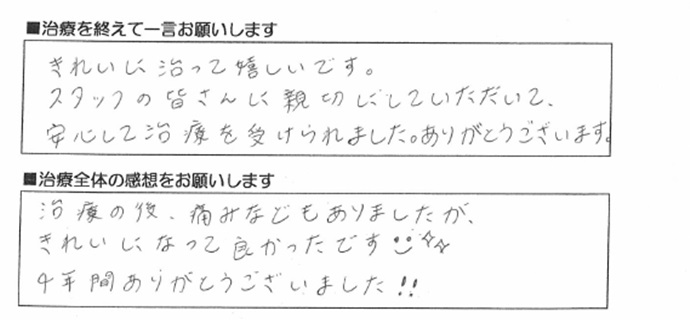 ■治療を終えて一言お願いします
きれいに治って嬉しいです。
スタッフの皆さんに親切にしていただいて、
安心して治療を受けられました。ありがとうございます。
■治療全体の感想をお願いします
治療の後、痛みなどもありましたが、
きれいになって良かったです☺☆☆
4年間ありがとうございました!!